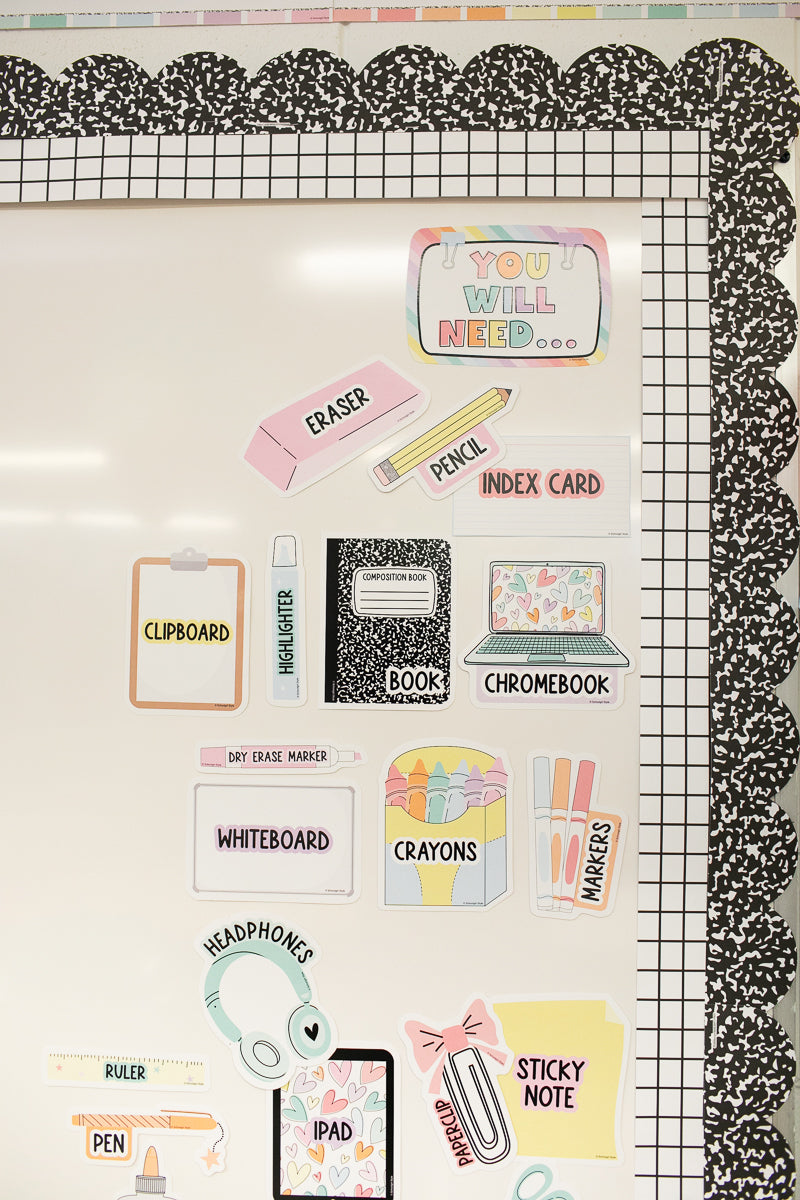 YOU
WILL
NEED...
ERASER
PENCIL
INDEX CARD
CLIPBOARD
HIGHLIGHTER
COMPOSITION BOOK
BOOK
CHROMEBOOK
DRY ERASE MARKER
WHITEBOARD
CRAYONS
MARKERS
HEADPHONES
RULER
PEN
IPAD
PAPERCLIP
STICKY
NOTE